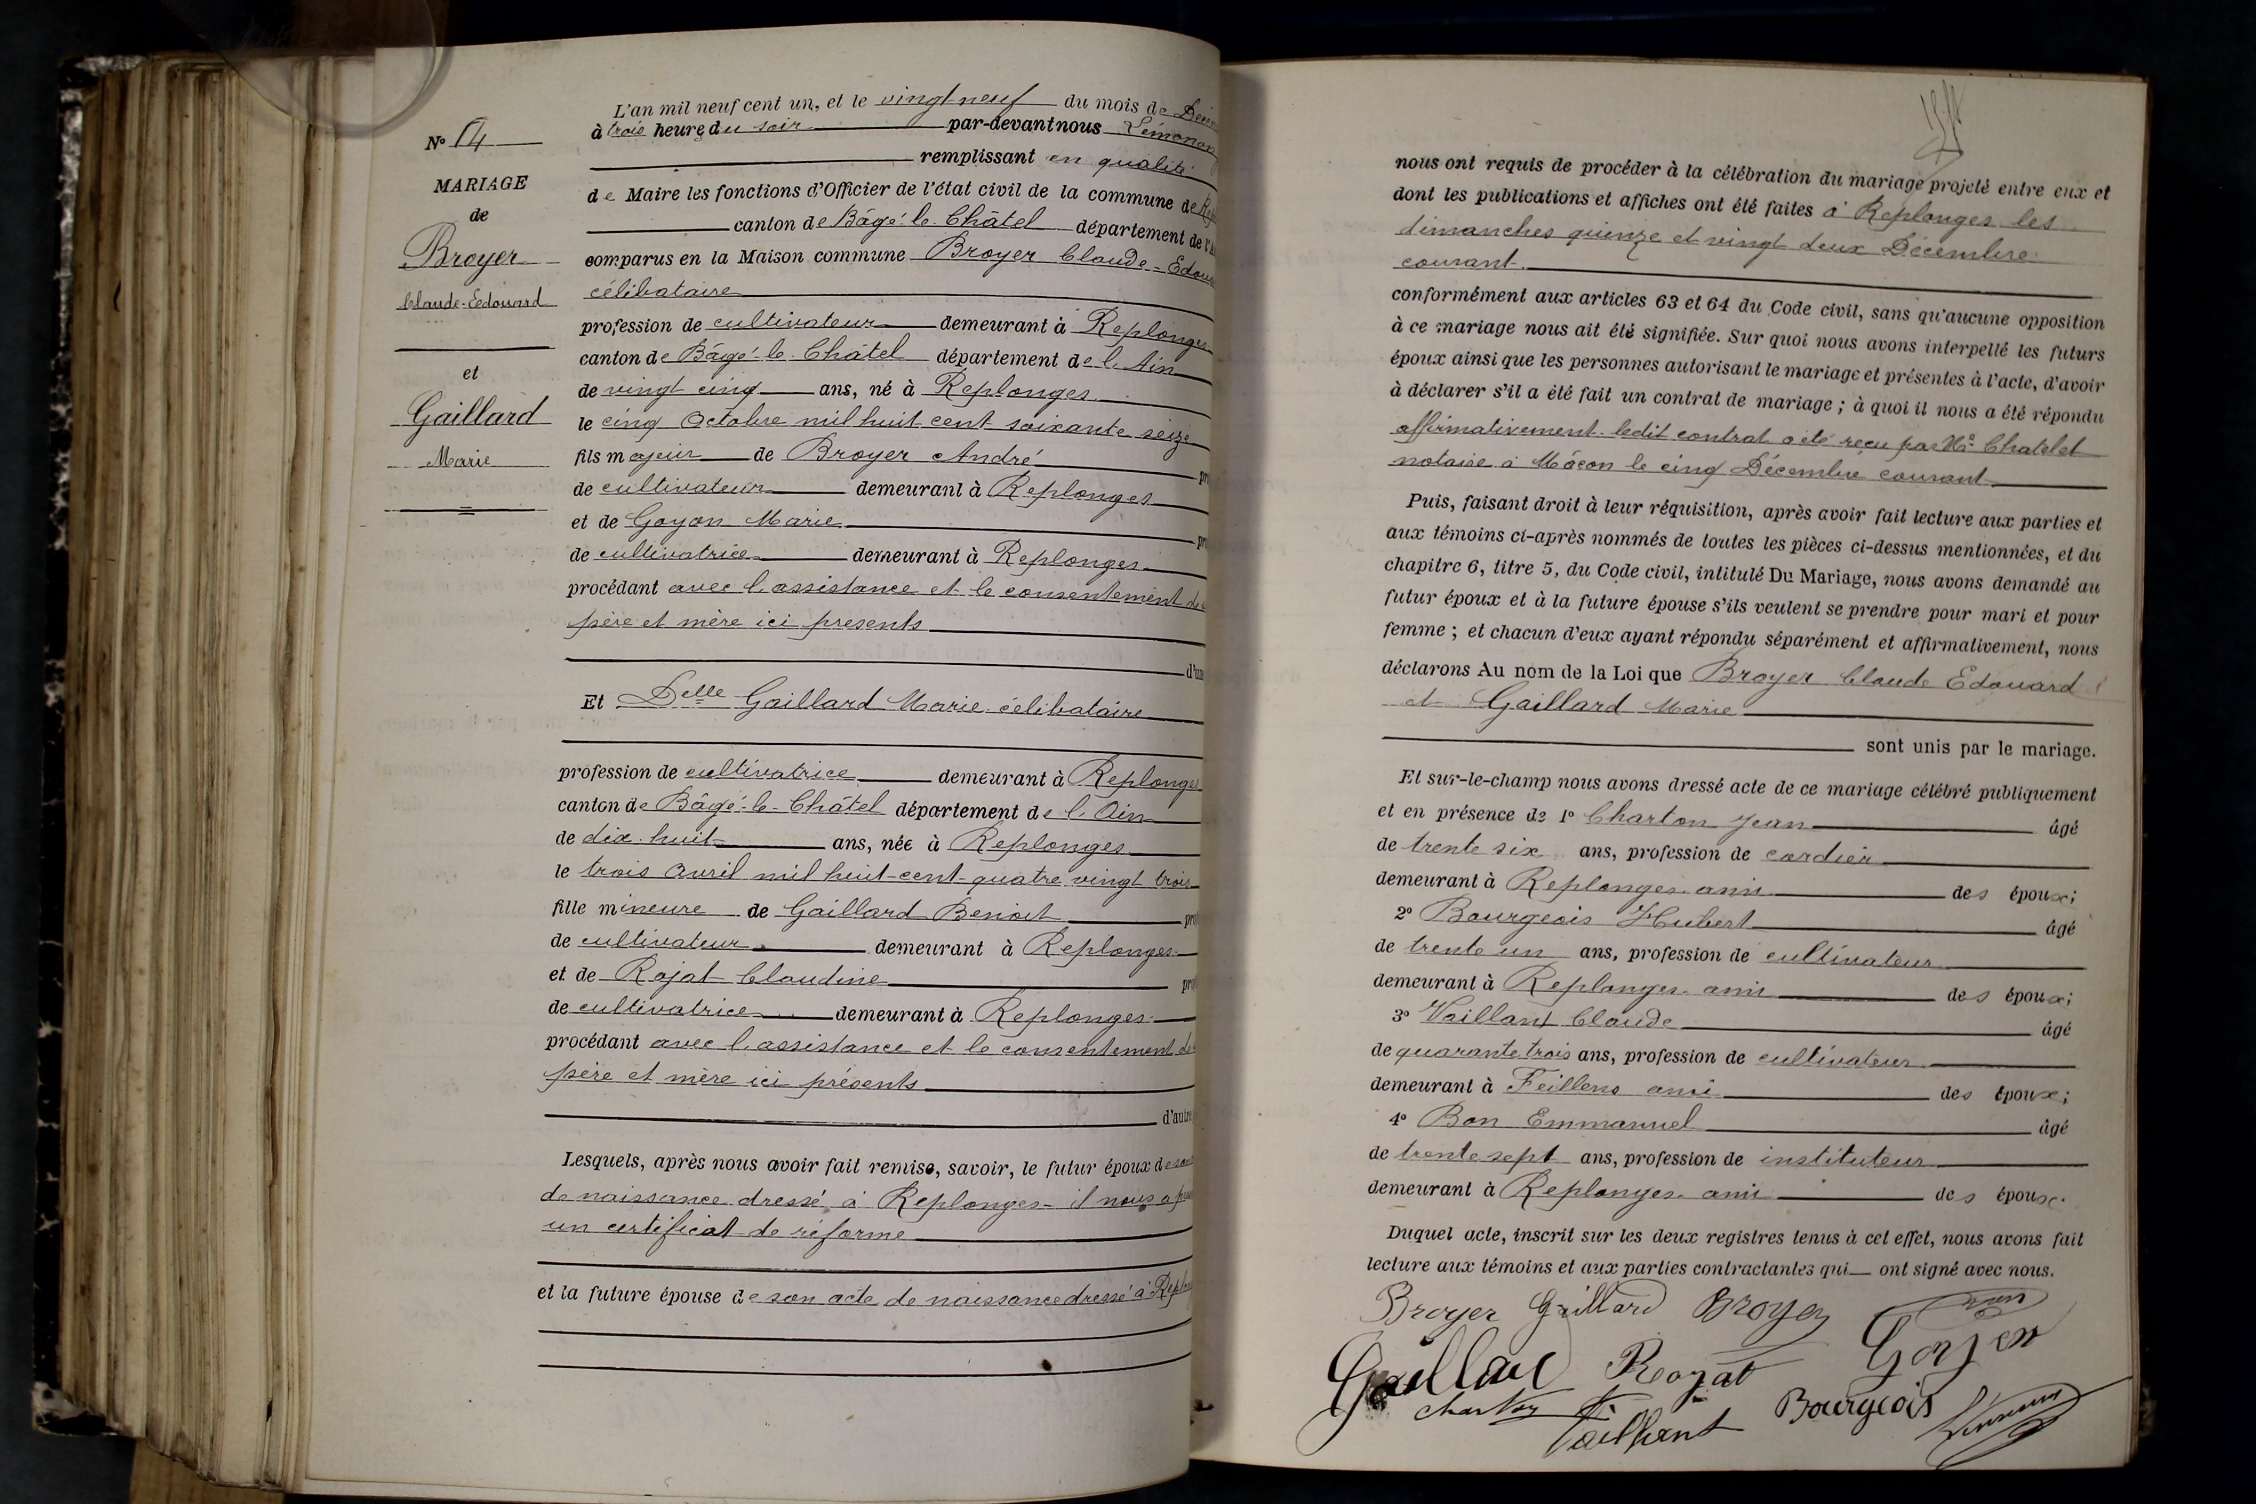 L'an mil neuf cent un, et le vingt neuf du mois de
à trois heures du soir par-devant nous
remplissant en qualité
de Maire les fonctions d'Officier de l'état civil de la commune de
canton de Bâgé-le-Châtel département de
comparus en la Maison commune Broyer Claude-
célibataire
profession de cultivateur demeurant à Replonges
canton de Bâgé-le-Châtel département de l'Ain
de vingt cinq ans, né à Replonges
le cinq Octobre mil huit cent soixante seize
fils majeur de Broyer André
de cultivateur demeurant à Replonges
et de Goyon Marie
de cultivatrice demeurant à Replonges
procédant avec l'assistance et le consentement de
père et mère ici presents
Et Delle Gaillard Marie célibataire
profession de cultivatrice demeurant à Replonges
canton de Bâgé-le-Châtel département de l'Ain
de dix-huit ans, née à Replonges
le trois Avril mil huit-cent-quatre vingt trois
fille mineure de Gaillard Benoit
de cultivateur demeurant à Replonges
et de Rojat Claudine
de cultivatrice demeurant à Replonges
procédant avec l'assistance et le consentement de
père et mère ici présents
Lesquels, après nous avoir fait remise, savoir, le futur époux de
de naissance dressé à Replonges - il nous a
un certificat de réforme
et la future épouse de son acte de naissance dressé à
No 14
MARIAGE
de
Broyer
Claude-Edouard
et
Gaillard
Marie
nous ont requis de procéder à la célébration du mariage projeté entre eux et
dont les publications et affiches ont été faites à Replonges les
dimanches quinze et vingt deux Décembre
courant.
conformément aux articles 63 et 64 du Code civil, sans qu'aucune opposition
à ce mariage nous ait été signifiée. Sur quoi nous avons interpellé les futurs
époux ainsi que les personnes autorisant le mariage et présentes à l'acte, d'avoir
à déclarer s'il a été fait un contrat de mariage ; à quoi il nous a été répondu
affirmativement. ledit contrat a été reçu par Me Chatelet
notaire à Mâcon le cinq Décembre courant
Puis, faisant droit à leur réquisition, après avoir fait lecture aux parties et
aux témoins ci-après nommés de toutes les pièces ci-dessus mentionnées, et du
chapitre 6, titre 5, du Code civil, intitulé Du Mariage, nous avons demandé au
futur époux et à la future épouse s'ils veulent se prendre pour mari et pour
femme ; et chacun d'eux ayant répondu séparément et affirmativement, nous
déclarons Au nom de la Loi que Broyer Claude Edouard
et Gaillard Marie
sont unis par le mariage.
Et sur-le-champ nous avons dressé acte de ce mariage célébré publiquement
et en présence de 1o Charton Jean âgé
de trente six ans, profession de cordier
demeurant à Replonges ami des époux;
2o Bourgeois Hubert âgé
de trente un ans, profession de cultivateur
demeurant à Replonges ami des époux;
3o Vaillant Claude âgé
de quarante trois ans, profession de cultivateur
demeurant à Feillens ami des époux;
4o Bon Emmanuel âgé
de trente sept ans, profession de instituteur
demeurant à Replonges ami des époux.
Duquel acte, inscrit sur les deux registres tenus à cet effet, nous avons fait
lecture aux témoins et aux parties contractantes qui ont signé avec nous.
Broyer Gaillard Broyer
Gaillard Rojat Goyon
Charton Vaillant Bourgeois